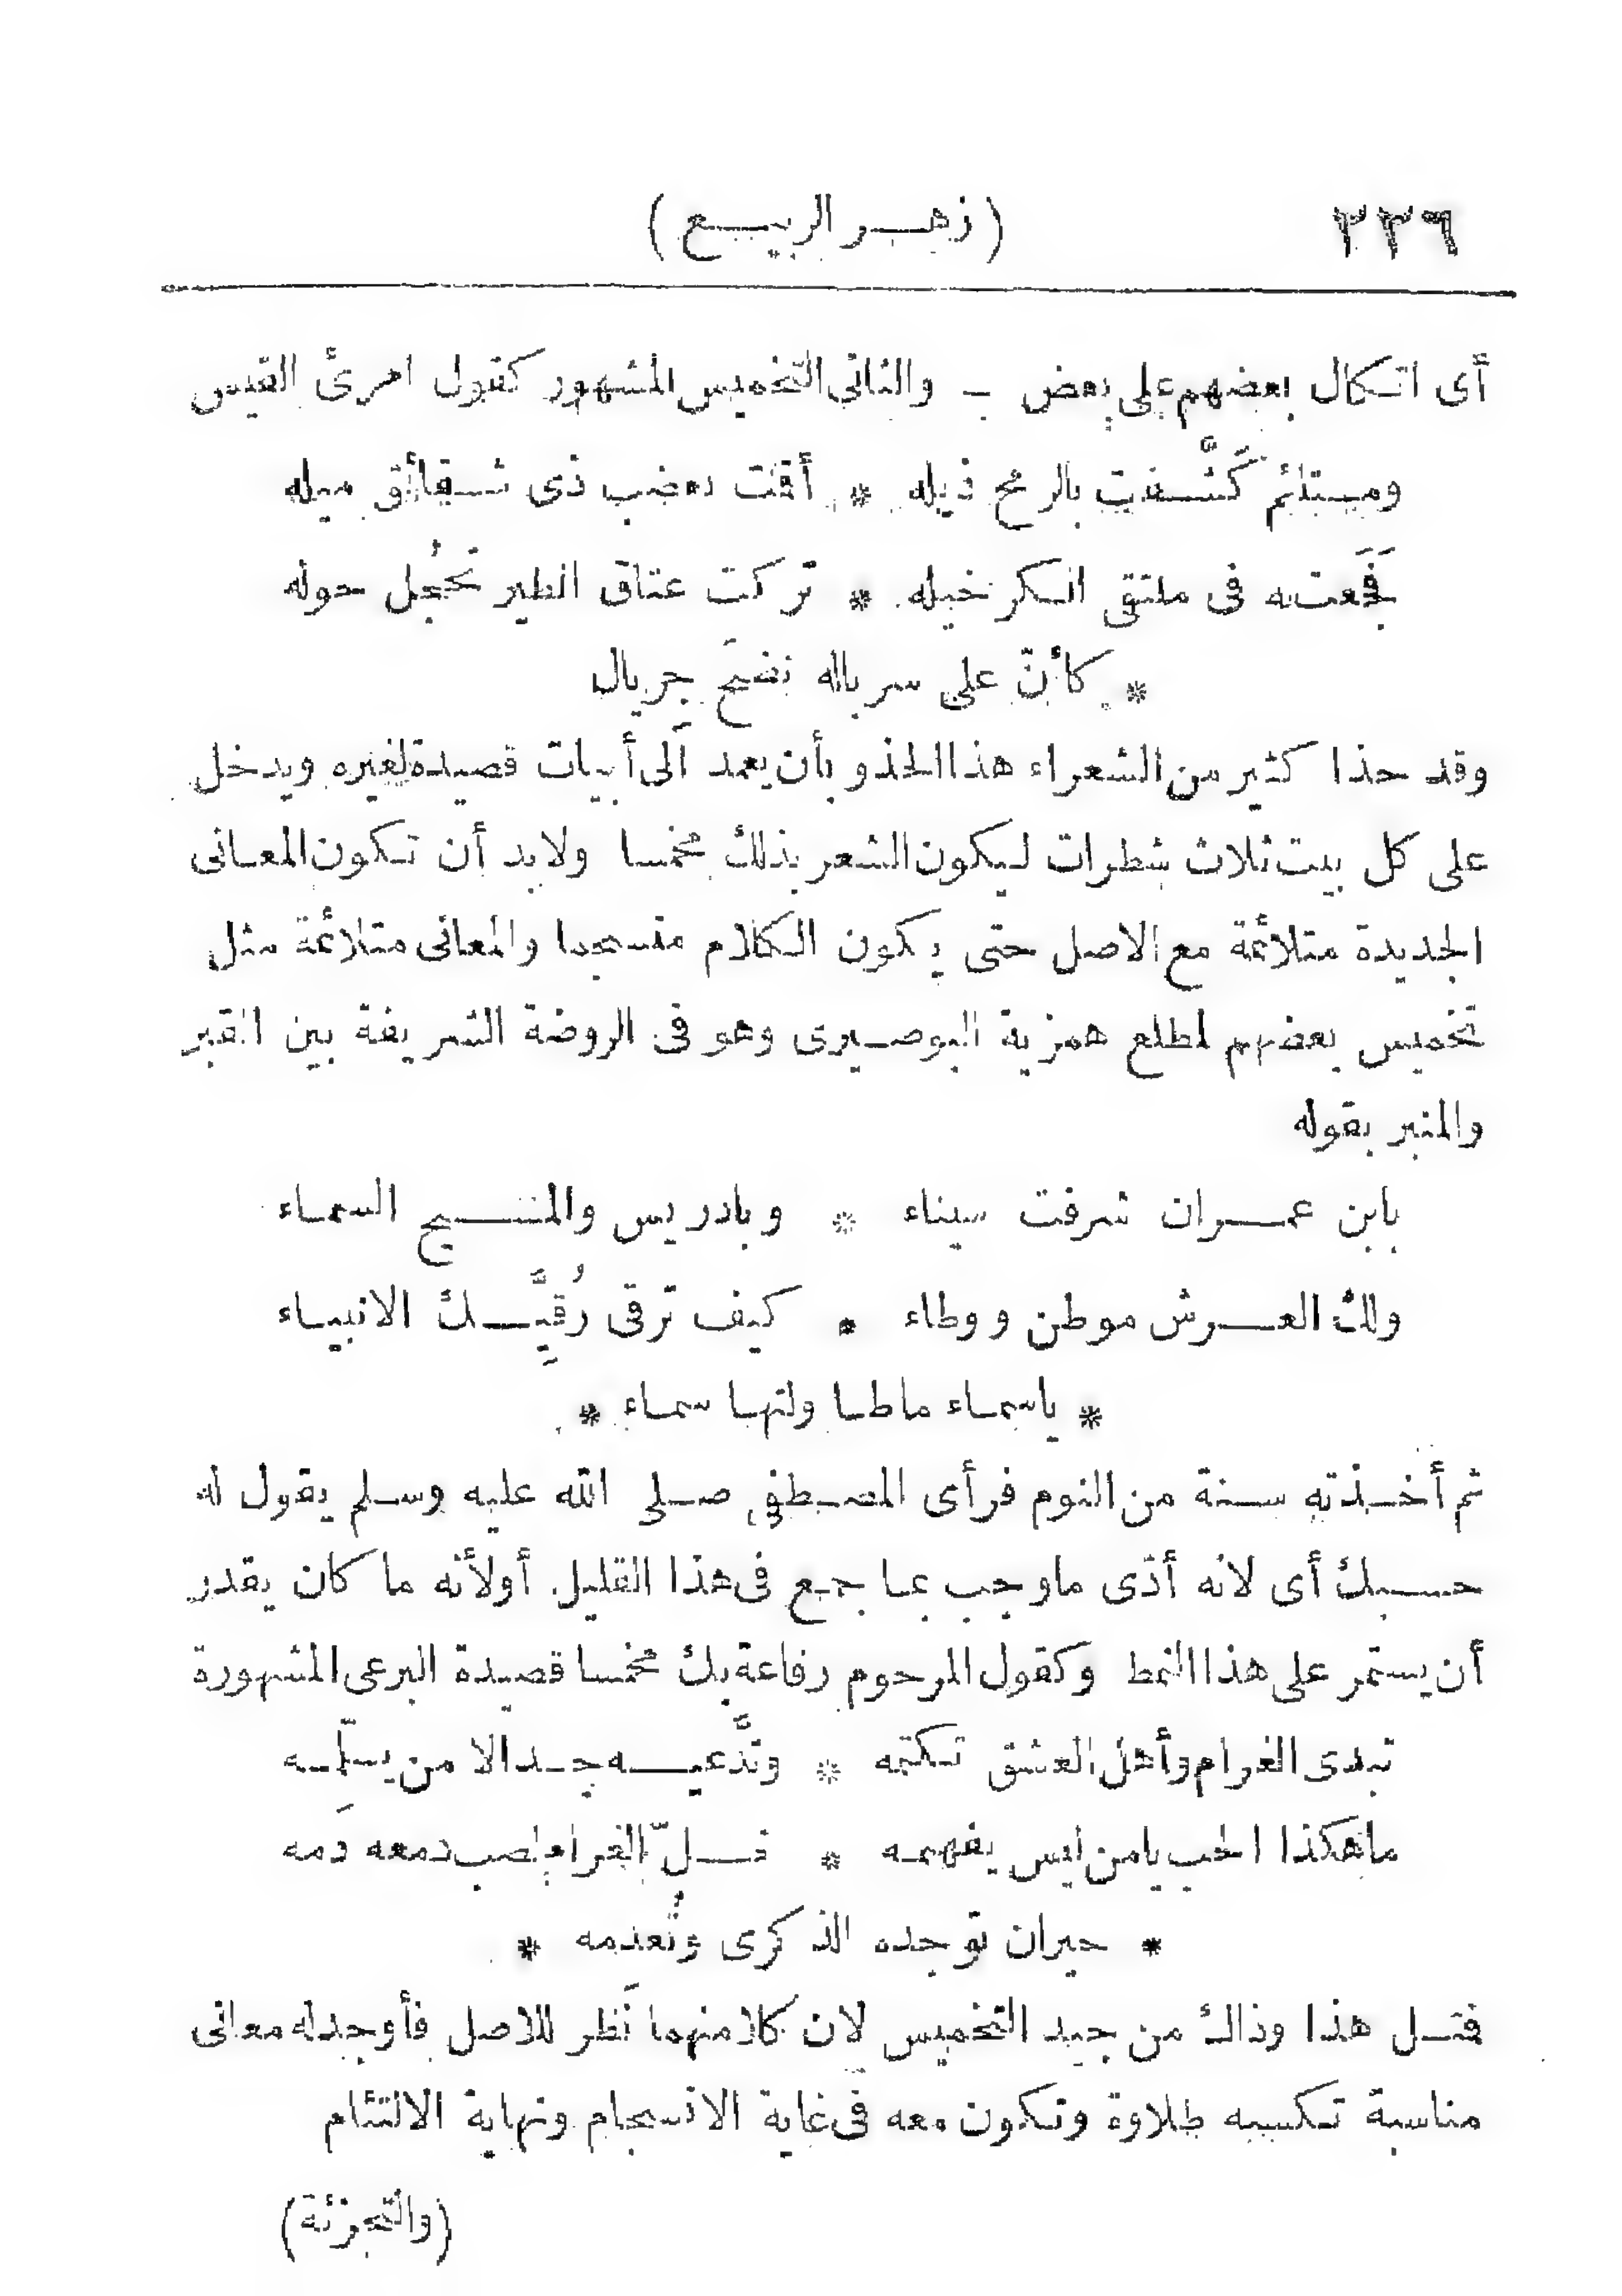 ٢٢٦ (زهر الربيع)
أى اتكال بعضهم على بعض ـ والثانى التخميس المشهور كقول امرئ القيس
ومستلئم كَشَّفت بالرمح ذيله * أقمت بعضب ذى شقائق ميله
فَجَعت به فى ملتقى الكر خيله * تركت عتاق الطير تَحجُل حوله
* كأنّ على سرباله نضحَ جِريال
وقد حذا كثير من الشعراء هذا الحذو بأن يعمد الى أبيات قصيدة لغيره ويدخل
على كل بيت ثلاث شطرات ليكون الشعر بذلك مخمسا ولابد أن تكون المعانى
الجديدة متلائمة مع الاصل حتى يكون الكلام منسجما والمعانى متلائمة مثل
تخميس بعضهم لمطلع همزية البوصيرى وهو فى الروضة الشريفة بين القبر
والمنبر بقوله
بابن عمران شرفت سيناء * وبادريس والمسيح السماء
ولك العرش موطن ووطاء * كيف ترقى رُقيَّك الانبياء
* ياسماء ماطاولتها سماء *
ثم أخذته سنة من النوم فرأى المصطفى صلى الله عليه وسلم يقول له
حسبك أى لانه أدّى ماوجب بما جمع فى هذا القليل. أولأنه ما كان يقدر
أن يستمر على هذا النمط وكقول المرحوم رفاعة بك مخمسا قصيدة البرعى المشهورة
تبدى الغرام وأهل العشق تكتمه * وتَدَّعيه جدالا من يسلّمه
ماهكذا الحب يامن ليس يفهمه * خلّ الغرام لصب دمعه دَمه
* حيران توجده الذكرى وتُعدمه *
فتل هذا وذاك من جيد التخميس لان كلا منهما نَظر للاصل فأوجد له معانى
مناسبة تكسبه طلاوة وتكون معه فى غاية الانسجام ونهاية الالتئام
(والتجزئة)